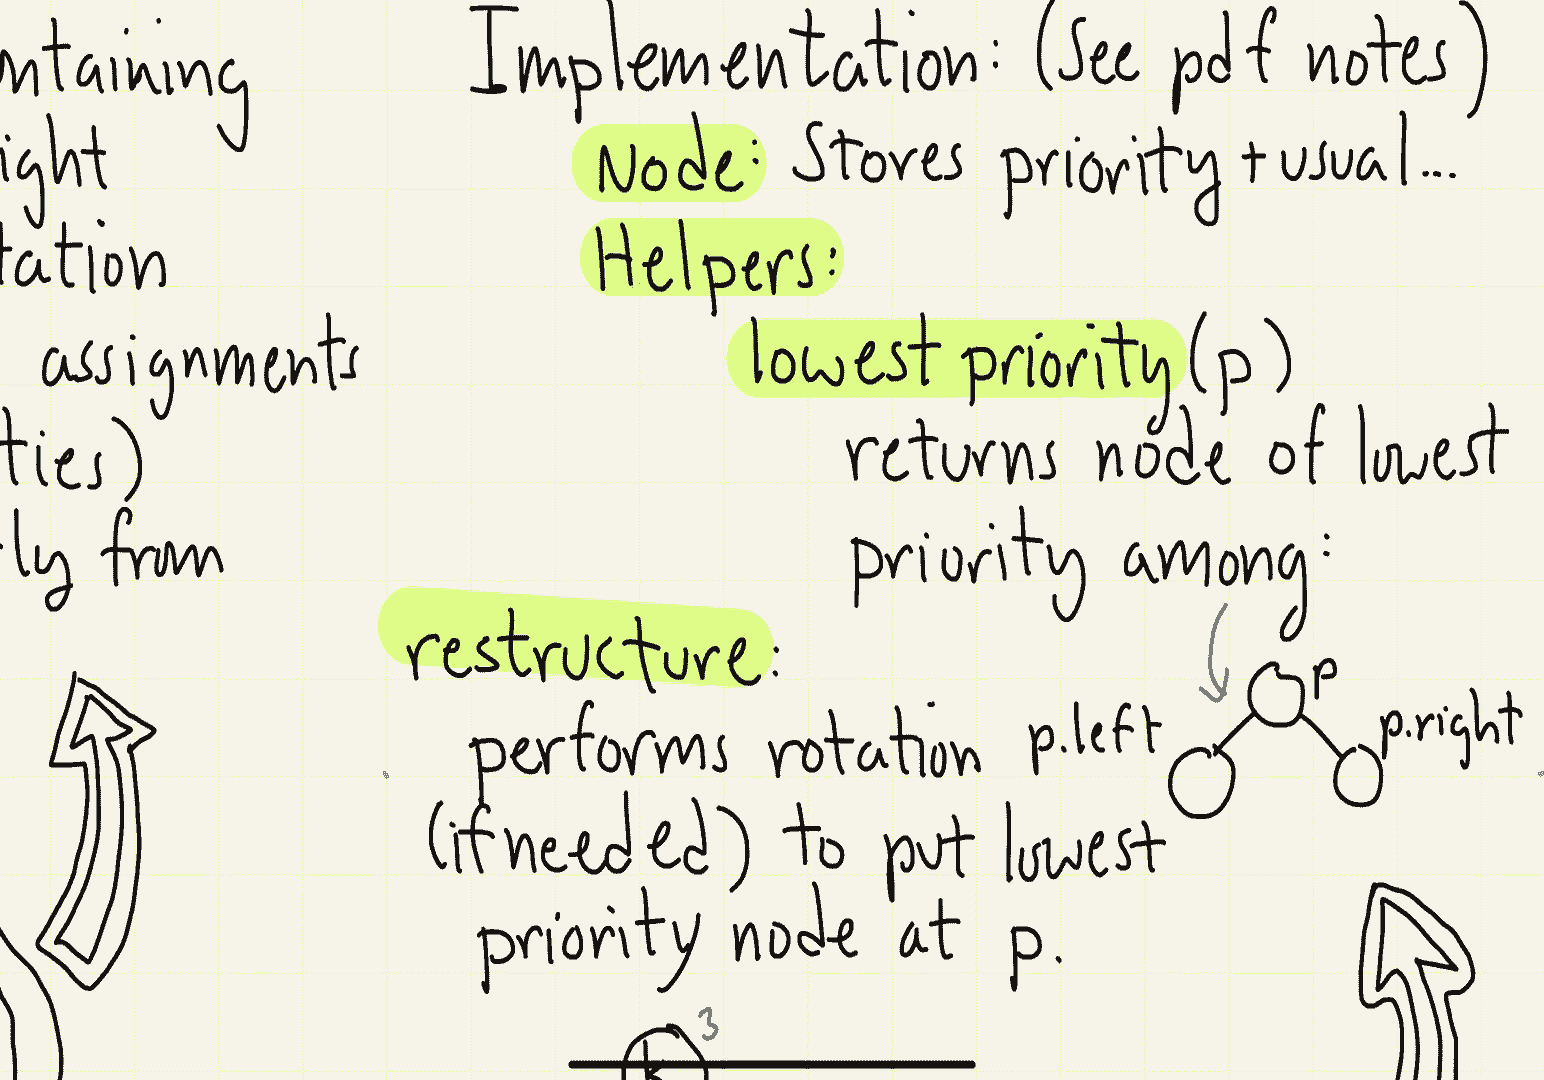 ntaining
ight
tation
assignments
ties)
ly from
Implementation: (See pdf notes)
Node: Stores priority + usual...
Helpers:
lowest priority (p)
returns node of lowest
priority among:
p
p.left
p.right
restructure:
performs rotation
(if needed) to put lowest
priority node at p.
3
k